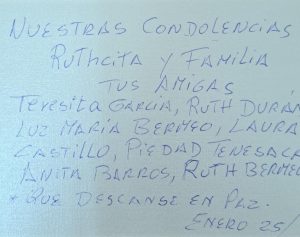 NUESTRAS CONDOLENCIAS
RUTHCITA Y FAMILIA
TUS AMIGAS
Teresita GARCÍA, RUTH DURÁN
LUZ MARÍA BERMEO, LAURA
CASTILLO, PIEDAD TENESACA
ANITA BARROS, RUTH BERMEO
+ QUE DESCANSE EN PAZ.
ENERO 25/